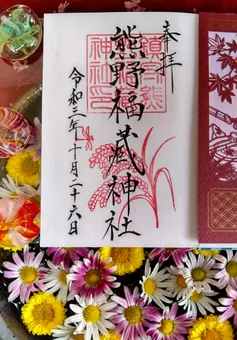 奉拝
熊野福藏神社
令和三年十月二十六日